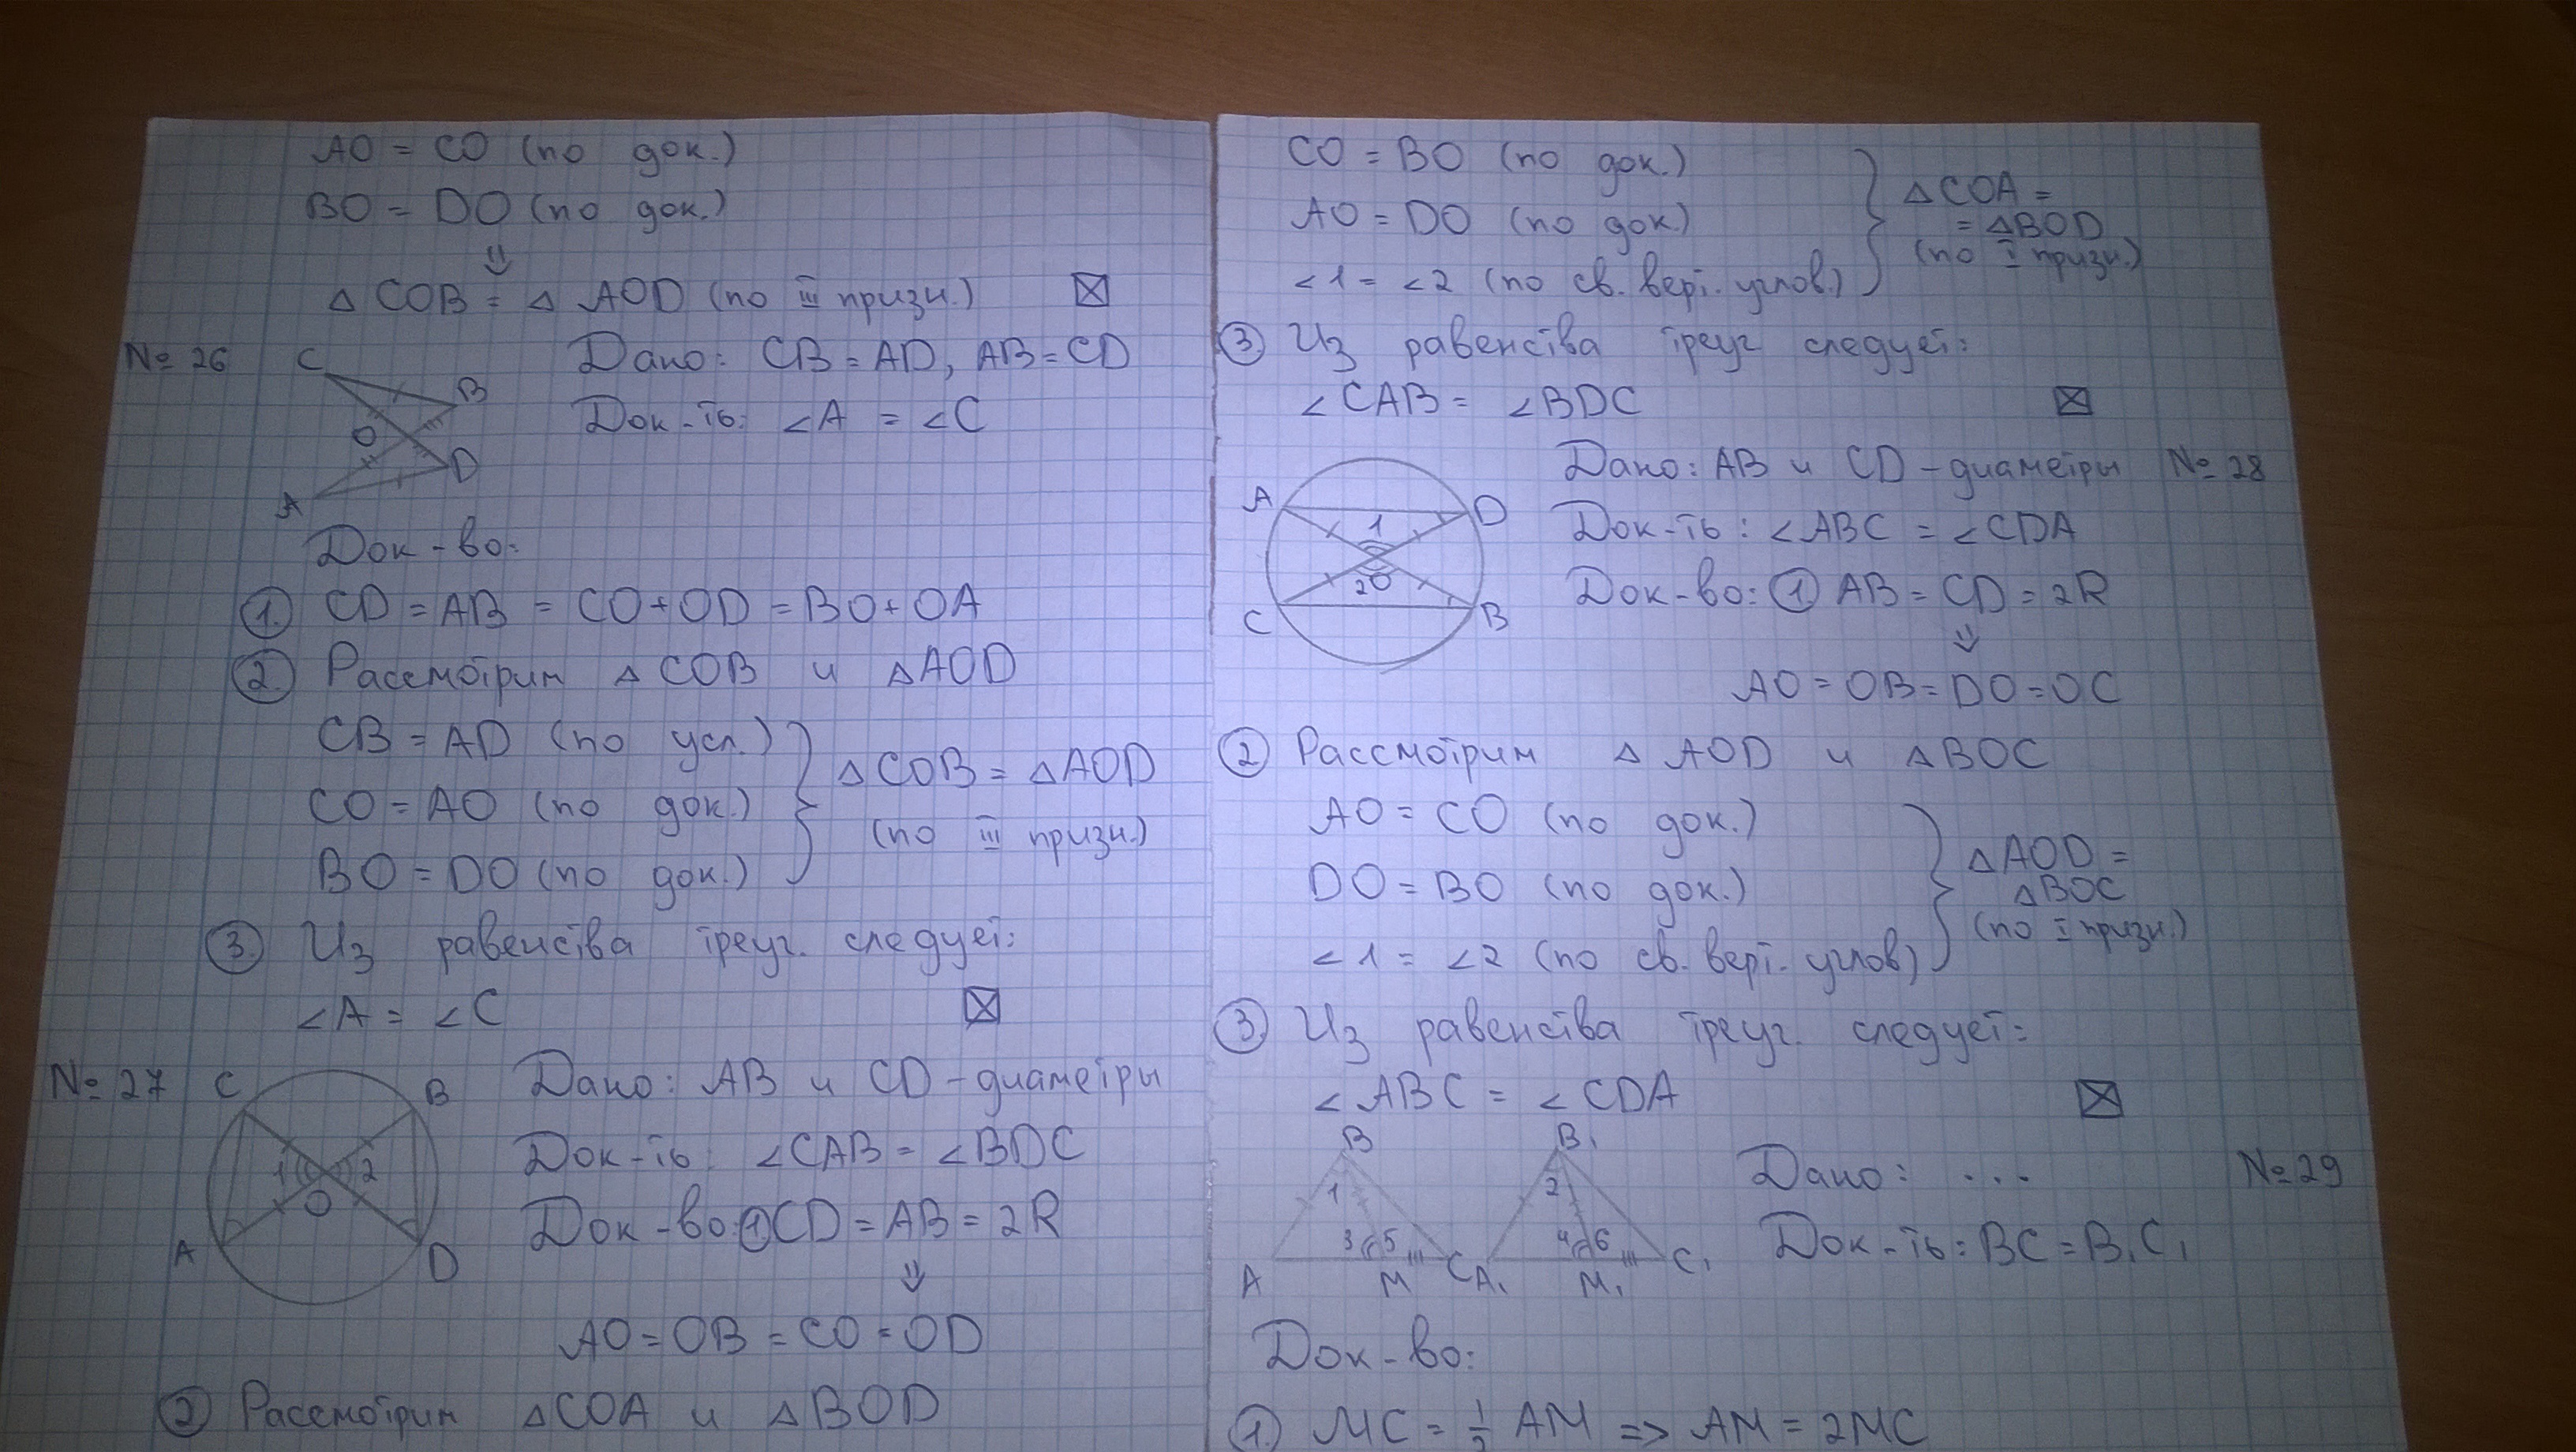 AO = CO (по док.)
BO = DO (по док.)
⇓
△ COB = △ AOD (по III призн.)
№ 26
C
B
O
D
A
Дано: CB = AD, AB = CD
Док-ть: ∠A = ∠C
Док-во:
1. CD = AB = CO + OD = BO + OA
2. Рассмотрим △ COB и △AOD
CB = AD (по усл.)
CO = AO (по док.)
BO = DO (по док.)
△COB = △AOD
(по III призн.)
3. Из равенства треуг. следует:
∠A = ∠C
№ 27
C
B
1
2
O
A
D
Дано: AB и CD - диаметры
Док-ть: ∠CAB = ∠BDC
Док-во: 1 CD = AB = 2R
⇓
AO = OB = CO = OD
2 Рассмотрим △COA и △BOD
CO = BO (по док.)
AO = DO (по док.)
∠1 = ∠2 (по св. верт. углов.)
△COA =
= △BOD
(по I призн.)
3. Из равенства треуг следует:
∠CAB = ∠BDC
A
D
1
2
O
C
B
Дано: AB и CD - диаметры № 28
Док-ть: ∠ABC = ∠CDA
Док-во: 1. AB = CD = 2R
⇓
AO = OB = DO = OC
2 Рассмотрим △ AOD и △BOC
AO = CO (по док.)
DO = BO (по док.)
∠1 = ∠2 (по св. верт. углов)
△AOD =
△BOC
(по I призн.)
3 Из равенства треуг. следует:
∠ABC = ∠CDA
B
1
3
5
A
M
C
B₁
2
4
6
A₁
M₁
C₁
Дано: ... № 29
Док-ть: BC = B₁C₁
Док-во:
1. MC = 1/2 AM => AM = 2MC